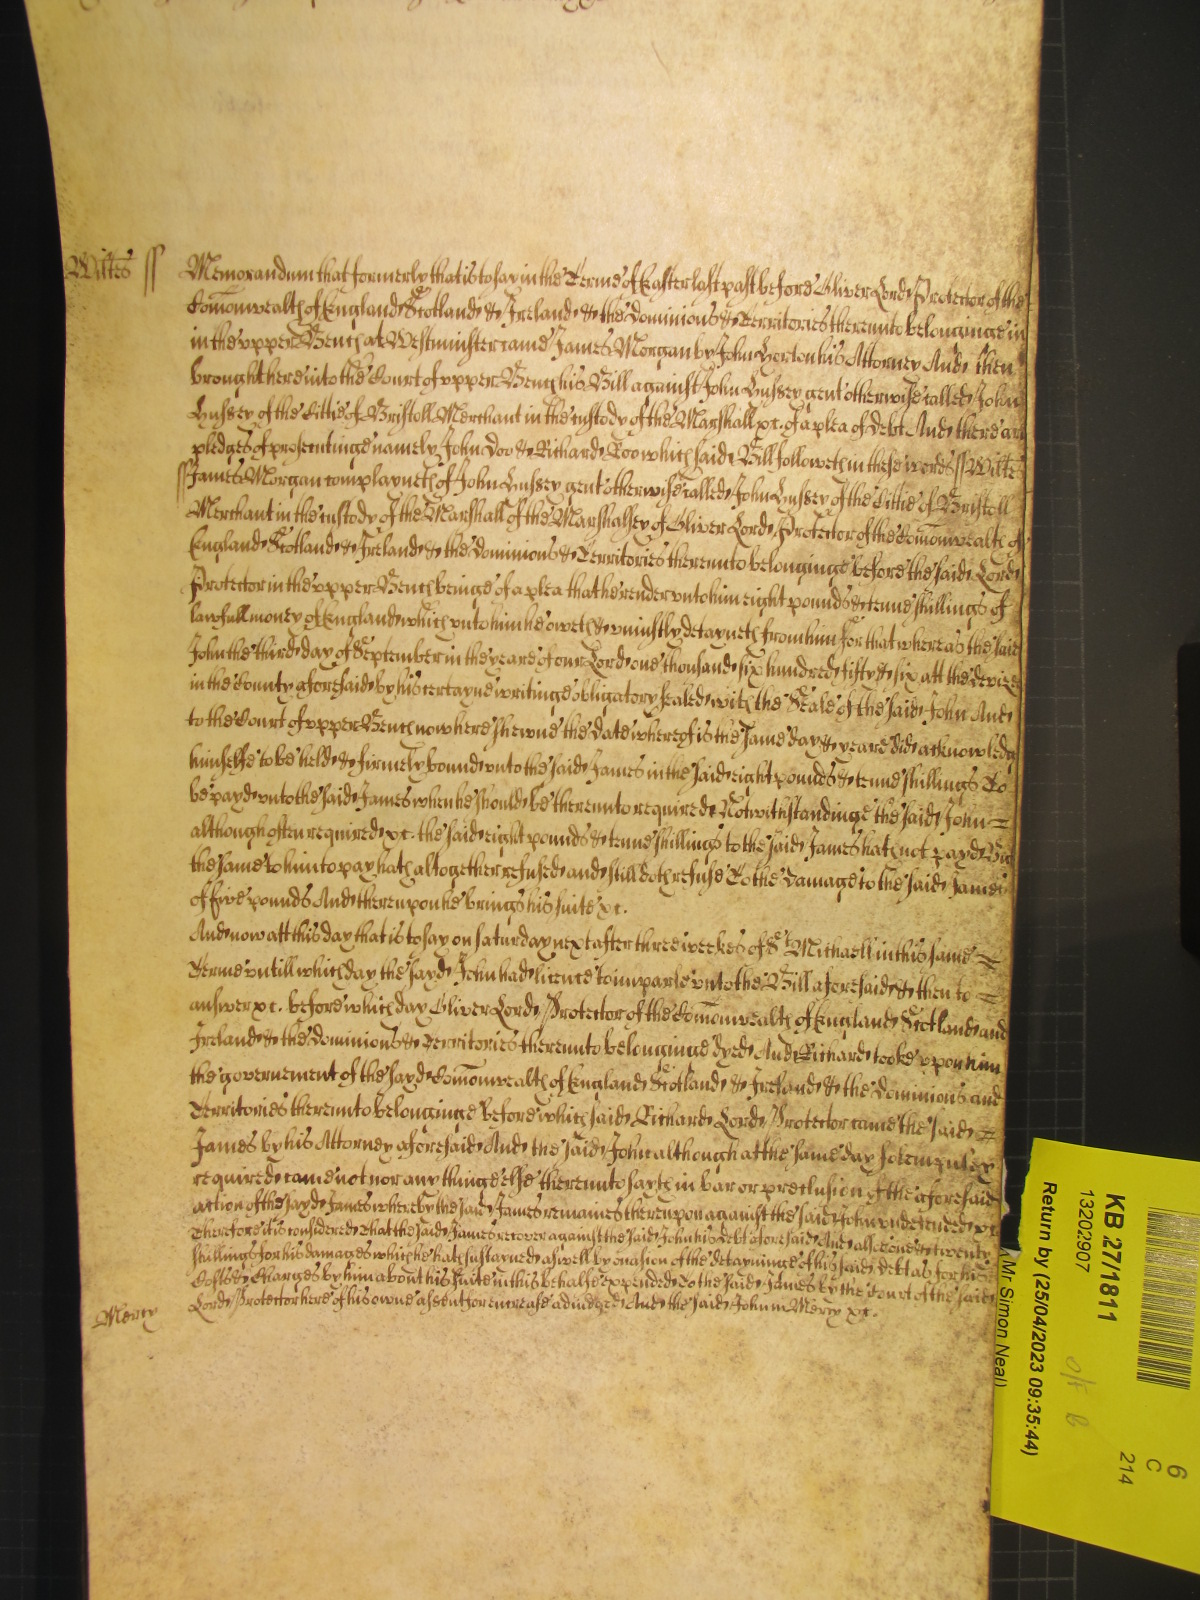 Wiltes ss Memorandum that formerly that is to say in the Terme of Easter last past before Oliver Lord Protector of the
Comonwealth of England Scotland & Ireland & the dominions & Territories thereunto belonginge in
in the upper Bench at Westminster came James Morgan by John Horton his Attorney And then
brought here into the Court of upper Bench his Bill against John Hussey gent otherwise called John
Hussey of the Cittie of Bristoll Merchant in the custody of the Marshall &c. of a plea of debt And there are
pledges of prosecutinge namely John Doo & Richard Roo which said Bill followeth in these words ss Wiltes
ss James Morgan complayneth of John Hussey gent otherwise called John Hussey of the Cittie of Bristoll
Merchant in the custody of the Marshall of the Marshalsey of Oliver Lord Protector of the Comonwealth of
England Scotland & Ireland & the dominions & Territories thereunto belonginge before the said Lord
Protector in the upper Bench beinge of a plea that he render unto him eight pounds & tenne shillings of
lawfull money of England which unto him he oweth & uniustly detayneth from him For that whereas the said
John the third day of September in the yeare of our Lord one thousand six hundred fifty & six att the Devizes
in the County aforesaid by his certayne writinge obligatory sealed with the Seale of the said John And
to the Court of upper Bench now here shewne the date whereof is the same day & yeare did acknowledg
himselfe to be held & firmely bound unto the said James in the said eight pounds & tenne shillings To
be payd unto the said James when he should be thereunto required Notwithstandinge the said John
although often required &c. the said eight pounds & tenne shillings to the said James hath not payd But
the same to him to pay hath altogether refused and still doth refuse To the Damage to the said James
of five pounds And thereupon he brings his suite &c.
And now att this day that is to say on saturday next after three weekes of St Michaell in this same
Terme untill which day the sayd John had licence to imparle unto the Bill aforesaid & then to
answer &c. before which day Oliver Lord Protector of the Comonwealth of England Scotland and
Ireland & the Dominions & Territories thereunto belonginge dyed And Richard tooke upon him
the governement of the sayd Comonwealth of England Scotland & Ireland & the dominions and
Territories thereunto belonginge before which said Richard Lord Protector came the said
James by his Attorney aforesaid And the said John although att the same day solempnley
required came not nor any thinge else thereunto sayth in bar or preclusion of the aforesaid
action of the sayd James whereby the said James remaines thereupon against the said John undefended &c
Therefore it is considered That the said James recover against the said John his debt aforesaid And alsoe one & twenty
shillings for his damages which he hath sustayned aswell by occasion of the detayninge of his said debt as for his
Costs & Charges by him about his suite in this behalfe expended To the said James by the Court of the said
Lord Protector here of his owne assent for encrease adiudged And the said John in Mercy &c.
Mercy
KB 27/1811
13202907
Return by (25/04/2023 09:35:44)
(Mr Simon Neal)
6
C
214